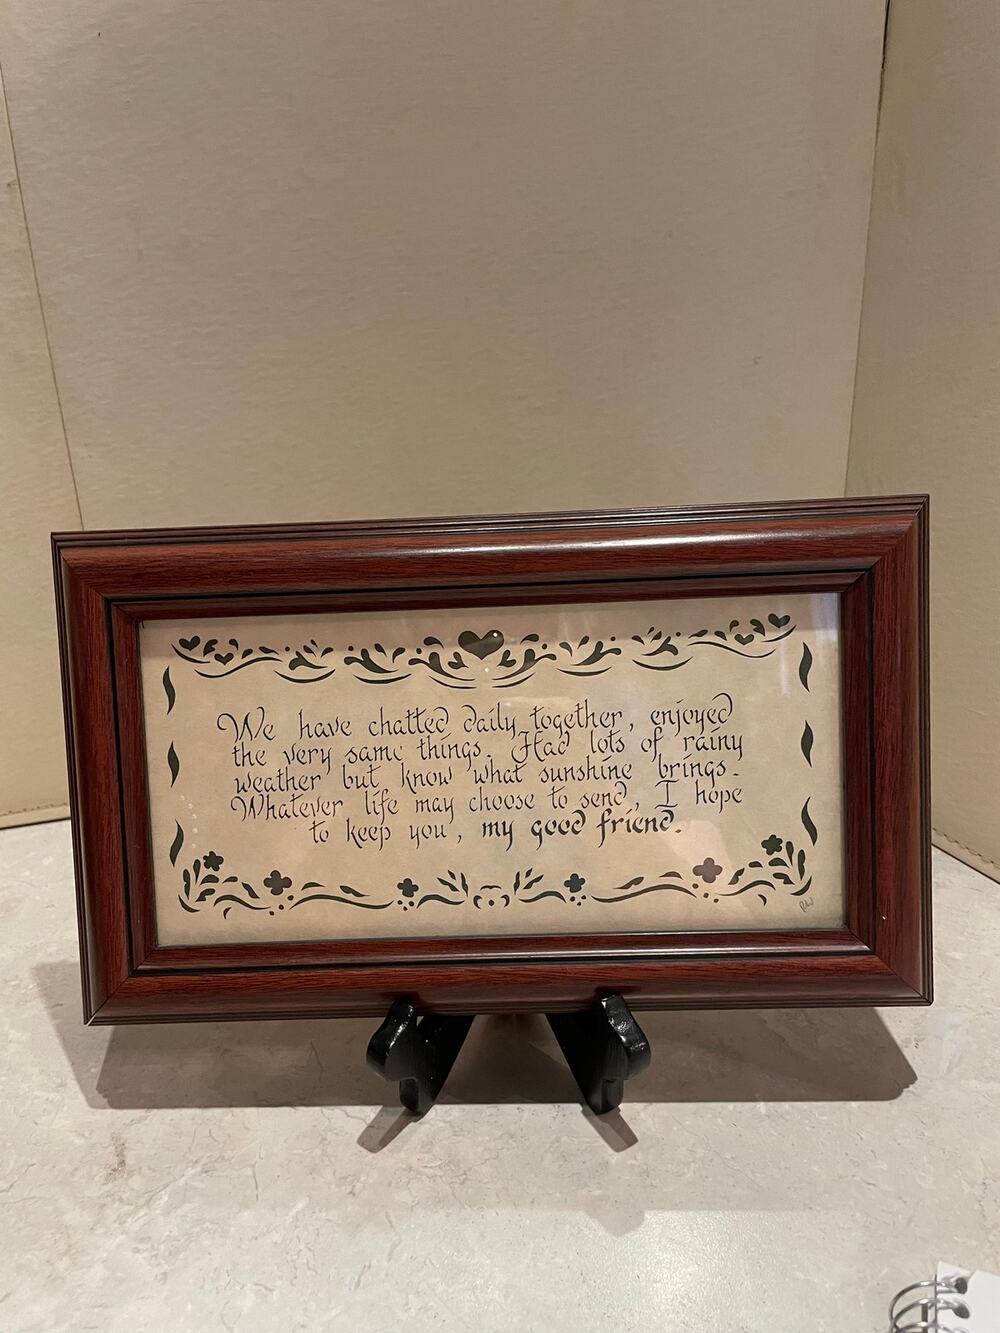 We have chatted daily together, enjoyed
the very same things. Had lots of rainy
weather but know what sunshine brings.
Whatever life may choose to send, I hope
to keep you, my good friend.